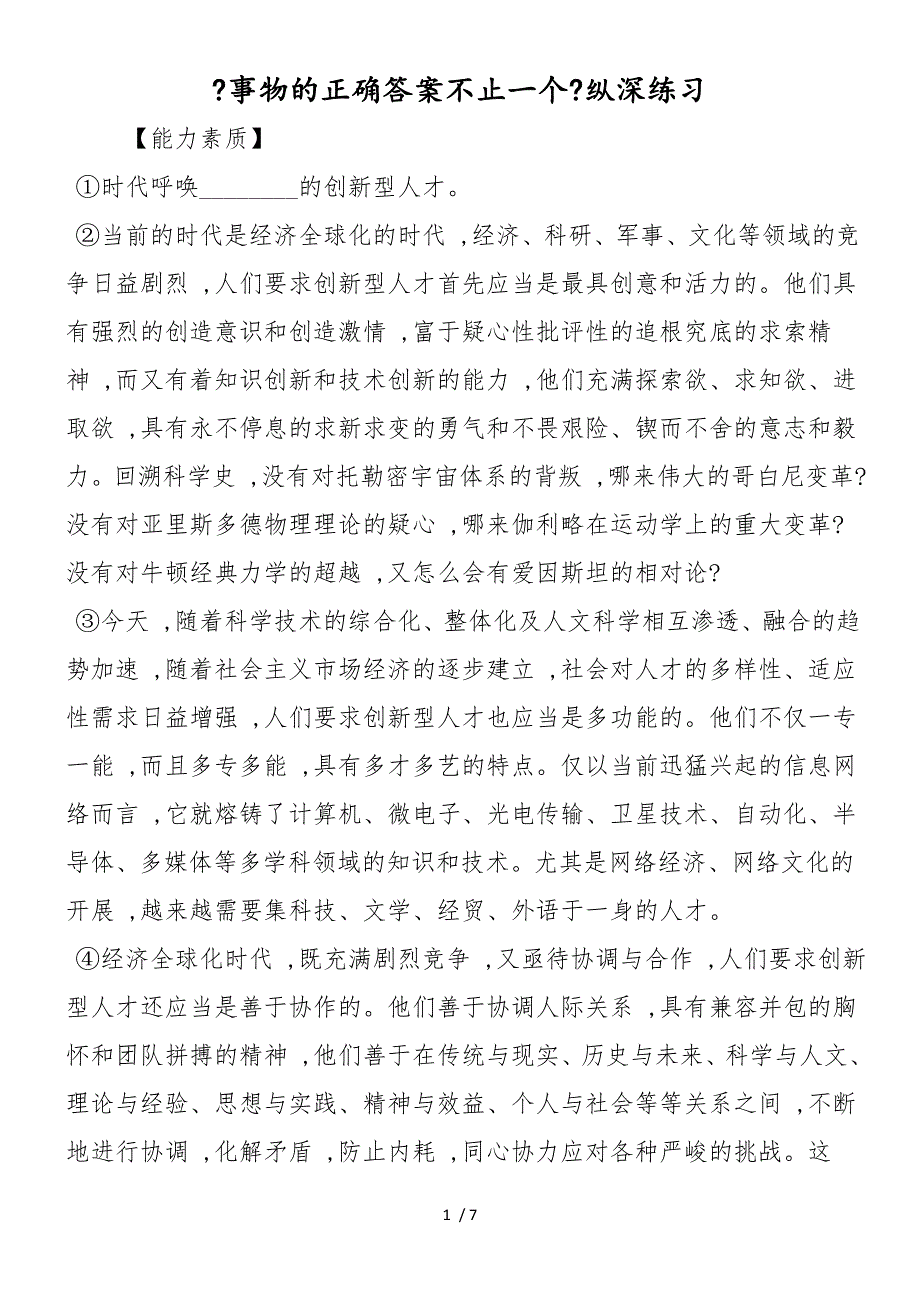 ?事物的正确答案不止一个?纵深练习
【能力素质】
①时代呼唤________的创新型人才。
②当前的时代是经济全球化的时代 ,经济、科研、军事、文化等领域的竞
争日益剧烈 ,人们要求创新型人才首先应当是最具创意和活力的。他们具
有强烈的创造意识和创造激情 ,富于疑心性批评性的追根究底的求索精
神 ,而又有着知识创新和技术创新的能力 ,他们充满探索欲、求知欲、进
取欲 ,具有永不停息的求新求变的勇气和不畏艰险、锲而不舍的意志和毅
力。回溯科学史 ,没有对托勒密宇宙体系的背叛 ,哪来伟大的哥白尼变革?
没有对亚里斯多德物理理论的疑心 ,哪来伽利略在运动学上的重大变革?
没有对牛顿经典力学的超越 ,又怎么会有爱因斯坦的相对论?
③今天 ,随着科学技术的综合化、整体化及人文科学相互渗透、融合的趋
势加速 ,随着社会主义市场经济的逐步建立 ,社会对人才的多样性、适应
性需求日益增强 ,人们要求创新型人才也应当是多功能的。他们不仅一专
一能 ,而且多专多能 ,具有多才多艺的特点。仅以当前迅猛兴起的信息网
络而言 ,它就熔铸了计算机、微电子、光电传输、卫星技术、自动化、半
导体、多媒体等多学科领域的知识和技术。尤其是网络经济、网络文化的
开展 ,越来越需要集科技、文学、经贸、外语于一身的人才。
④经济全球化时代 ,既充满剧烈竞争 ,又亟待协调与合作 ,人们要求创新
型人才还应当是善于协作的。他们善于协调人际关系 ,具有兼容并包的胸
怀和团队拼搏的精神 ,他们善于在传统与现实、历史与未来、科学与人文、
理论与经验、思想与实践、精神与效益、个人与社会等等关系之间 ,不断
地进行协调 ,化解矛盾 ,防止内耗 ,同心协力应对各种严峻的挑战。这
1 / 7